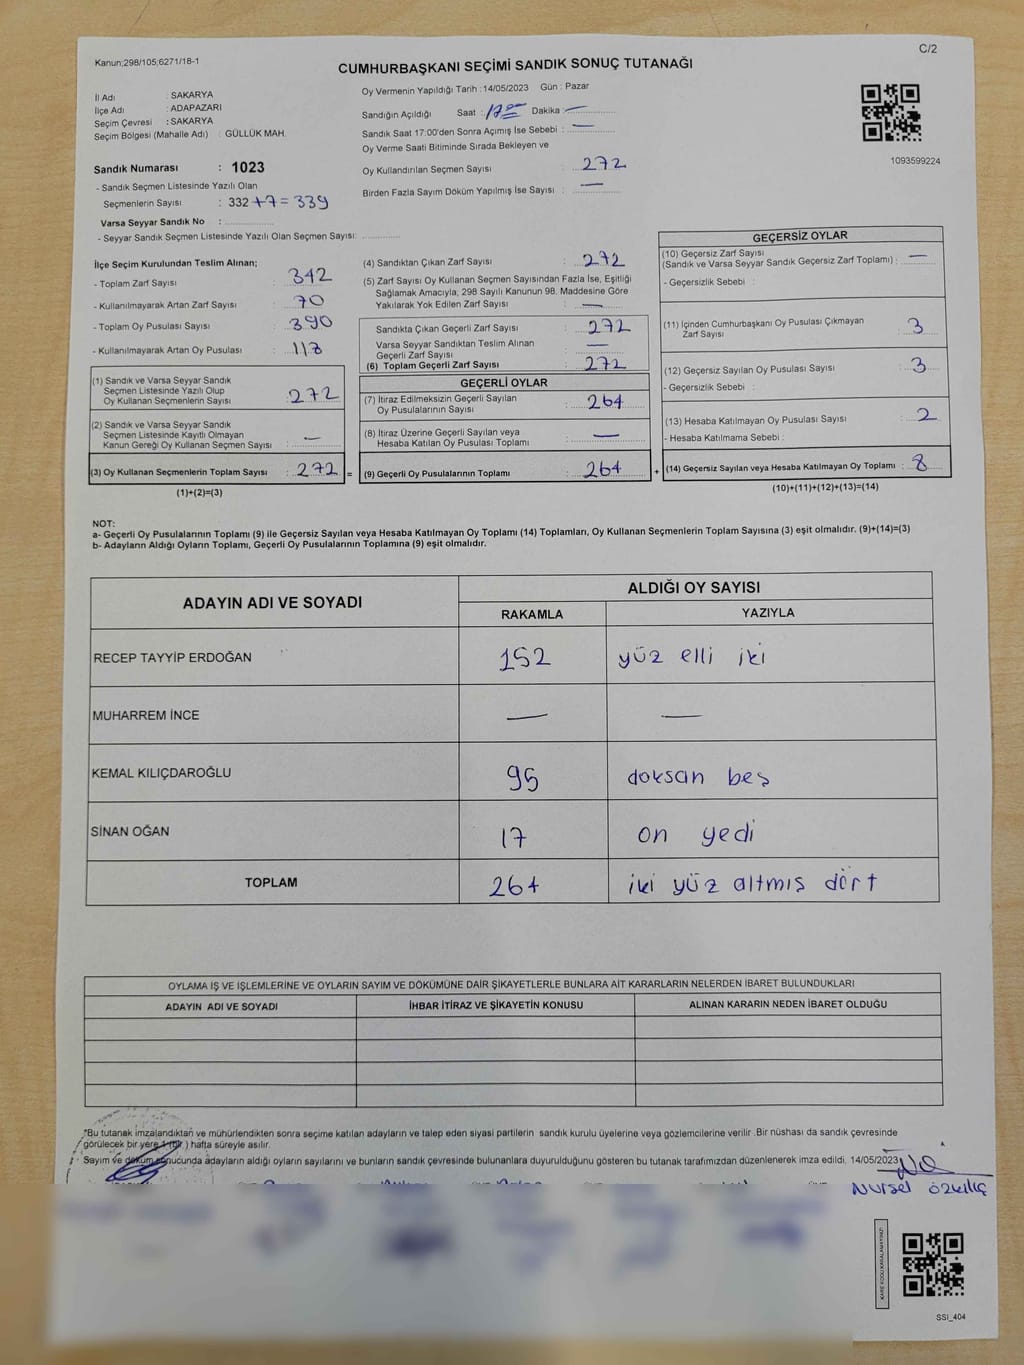 C/2
Kanun;298/105;6271/18-1
CUMHURBAŞKANI SEÇİMİ SANDIK SONUÇ TUTANAĞI
İl Adı : SAKARYA
İlçe Adı : ADAPAZARI
Seçim Çevresi : SAKARYA
Seçim Bölgesi (Mahalle Adı) : GÜLLÜK MAH.
Sandık Numarası : 1023
- Sandık Seçmen Listesinde Yazılı Olan
Seçmenlerin Sayısı : 332 +7 = 339
Varsa Seyyar Sandık No :
- Seyyar Sandık Seçmen Listesinde Yazılı Olan Seçmen Sayısı:
Oy Vermenin Yapıldığı Tarih :14/05/2023 Gün : Pazar
Sandığın Açıldığı Saat : 17:00 Dakika : —
Sandık Saat 17:00'den Sonra Açımış İse Sebebi : —
Oy Verme Saati Bitiminde Sırada Bekleyen ve
Oy Kullandırılan Seçmen Sayısı : 272
Birden Fazla Sayım Döküm Yapılmış İse Sayısı : —
1093599224
İlçe Seçim Kurulundan Teslim Alınan;
- Toplam Zarf Sayısı : 342
- Kullanılmayarak Artan Zarf Sayısı : 70
- Toplam Oy Pusulası Sayısı : 390
- Kullanılmayarak Artan Oy Pusulası : 118
(1) Sandık ve Varsa Seyyar Sandık
Seçmen Listesinde Yazılı Olup
Oy Kullanan Seçmenlerin Sayısı : 272
(2) Sandık ve Varsa Seyyar Sandık
Seçmen Listesinde Kayıtlı Olmayan
Kanun Gereği Oy Kullanan Seçmen Sayısı : —
(3) Oy Kullanan Seçmenlerin Toplam Sayısı : 272 =
(1)+(2)=(3)
(4) Sandıktan Çıkan Zarf Sayısı : 272
(5) Zarf Sayısı Oy Kullanan Seçmen Sayısından Fazla İse, Eşitliği
Sağlamak Amacıyla; 298 Sayılı Kanunun 98. Maddesine Göre
Yakılarak Yok Edilen Zarf Sayısı : —
Sandıkta Çıkan Geçerli Zarf Sayısı : 272
Varsa Seyyar Sandıktan Teslim Alınan
Geçerli Zarf Sayısı : —
(6) Toplam Geçerli Zarf Sayısı : 272
GEÇERLİ OYLAR
(7) İtiraz Edilmeksizin Geçerli Sayılan
Oy Pusulalarının Sayısı : 264
(8) İtiraz Üzerine Geçerli Sayılan veya
Hesaba Katılan Oy Pusulası Toplamı : —
(9) Geçerli Oy Pusulalarının Toplamı : 264 +
GEÇERSİZ OYLAR
(10) Geçersiz Zarf Sayısı
(Sandık ve Varsa Seyyar Sandık Geçersiz Zarf Toplamı) : —
- Geçersizlik Sebebi :
(11) İçinden Cumhurbaşkanı Oy Pusulası Çıkmayan
Zarf Sayısı : 3
(12) Geçersiz Sayılan Oy Pusulası Sayısı : 3
- Geçersizlik Sebebi :
(13) Hesaba Katılmayan Oy Pusulası Sayısı : 2
- Hesaba Katılmama Sebebi :
(14) Geçersiz Sayılan veya Hesaba Katılmayan Oy Toplamı : 8
(10)+(11)+(12)+(13)=(14)
NOT:
a- Geçerli Oy Pusulalarının Toplamı (9) ile Geçersiz Sayılan veya Hesaba Katılmayan Oy Toplamı (14) Toplamları, Oy Kullanan Seçmenlerin Toplam Sayısına (3) eşit olmalıdır. (9)+(14)=(3)
b- Adayların Aldığı Oyların Toplamı, Geçerli Oy Pusulalarının Toplamına (9) eşit olmalıdır.
ADAYIN ADI VE SOYADI ALDIĞI OY SAYISI
RAKAMLA YAZIYLA
RECEP TAYYİP ERDOĞAN 152 yüz elli iki
MUHARREM İNCE — —
KEMAL KILIÇDAROĞLU 95 doksan beş
SİNAN OĞAN 17 on yedi
TOPLAM 264 iki yüz altmış dört
OYLAMA İŞ VE İŞLEMLERİNE VE OYLARIN SAYIM VE DÖKÜMÜNE DAİR ŞİKAYETLERLE BUNLARA AİT KARARLARIN NELERDEN İBARET BULUNDUKLARI
ADAYIN ADI VE SOYADI İHBAR İTİRAZ VE ŞİKAYETİN KONUSU ALINAN KARARIN NEDEN İBARET OLDUĞU
*Bu tutanak imzalandıktan ve mühürlendikten sonra seçime katılan adayların ve talep eden siyasi partilerin sandık kurulu üyelerine veya gözlemcilerine verilir .Bir nüshası da sandık çevresinde
görülecek bir yere 1 (bir ) hafta süreyle asılır.
Sayım ve döküm sonucunda adayların aldığı oyların sayılarını ve bunların sandık çevresinde bulunanlara duyurulduğunu gösteren bu tutanak tarafımızdan düzenlenerek imza edildi. 14/05/2023
Nursel Özkılıç
SSI_404